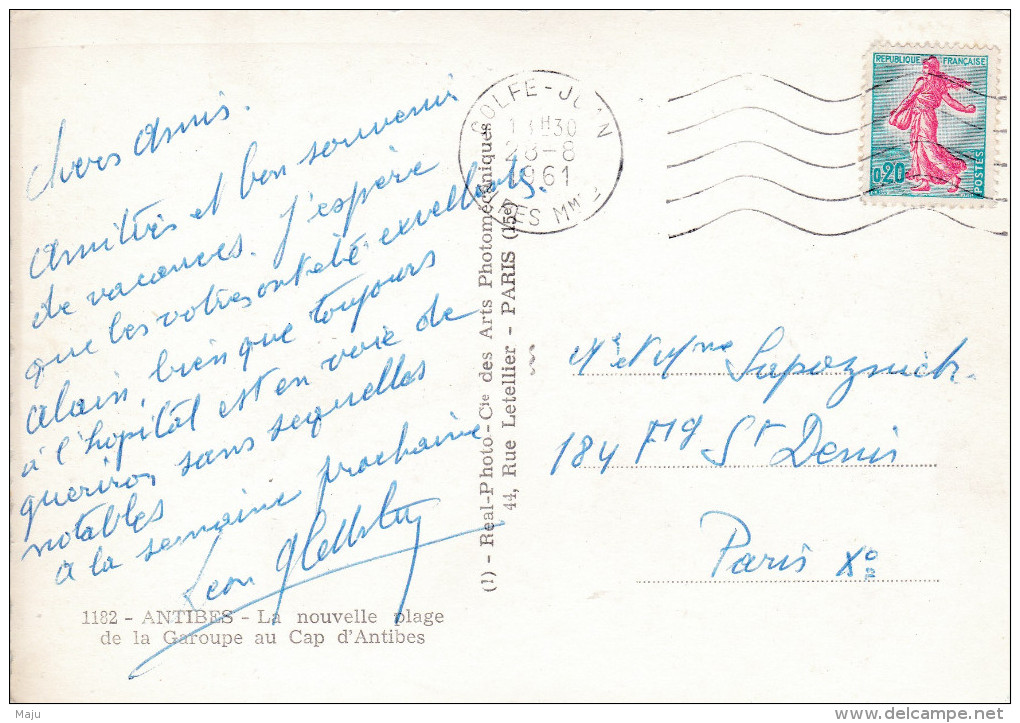 Chers Amis.
Amitiés et bon souvenir
de vacances. J'espère
que les votres ont été excellents.
Alain, bien que toujours
à l'hopital est en voie de
guerison sans sequelles
notables
A la semaine prochaine
Leon
1182 - ANTIBES - La nouvelle plage
de la Garoupe au Cap d'Antibes
(1) - Real-Photo-Cie des Arts Photomécaniques
44, Rue Letellier - PARIS (15e)
GOLFE-JUAN
13H30
28-8
1961
RES MMES
REPUBLIQUE FRANÇAISE
0,20
POSTES
Mr et Mme Sapoznick.
184 Fg St Denis
Paris Xo
Maju
http://www.delcampe.net